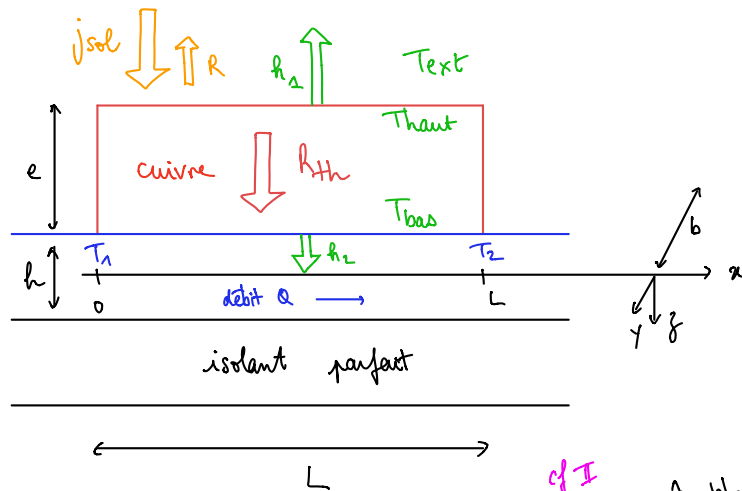 jsol
R
h1
Text
Thaut
e
cuivre
Rth
Tbas
b
T1
h2
T2
h
x
0
débit Q
L
y
z
isolant parfait
L
cf II